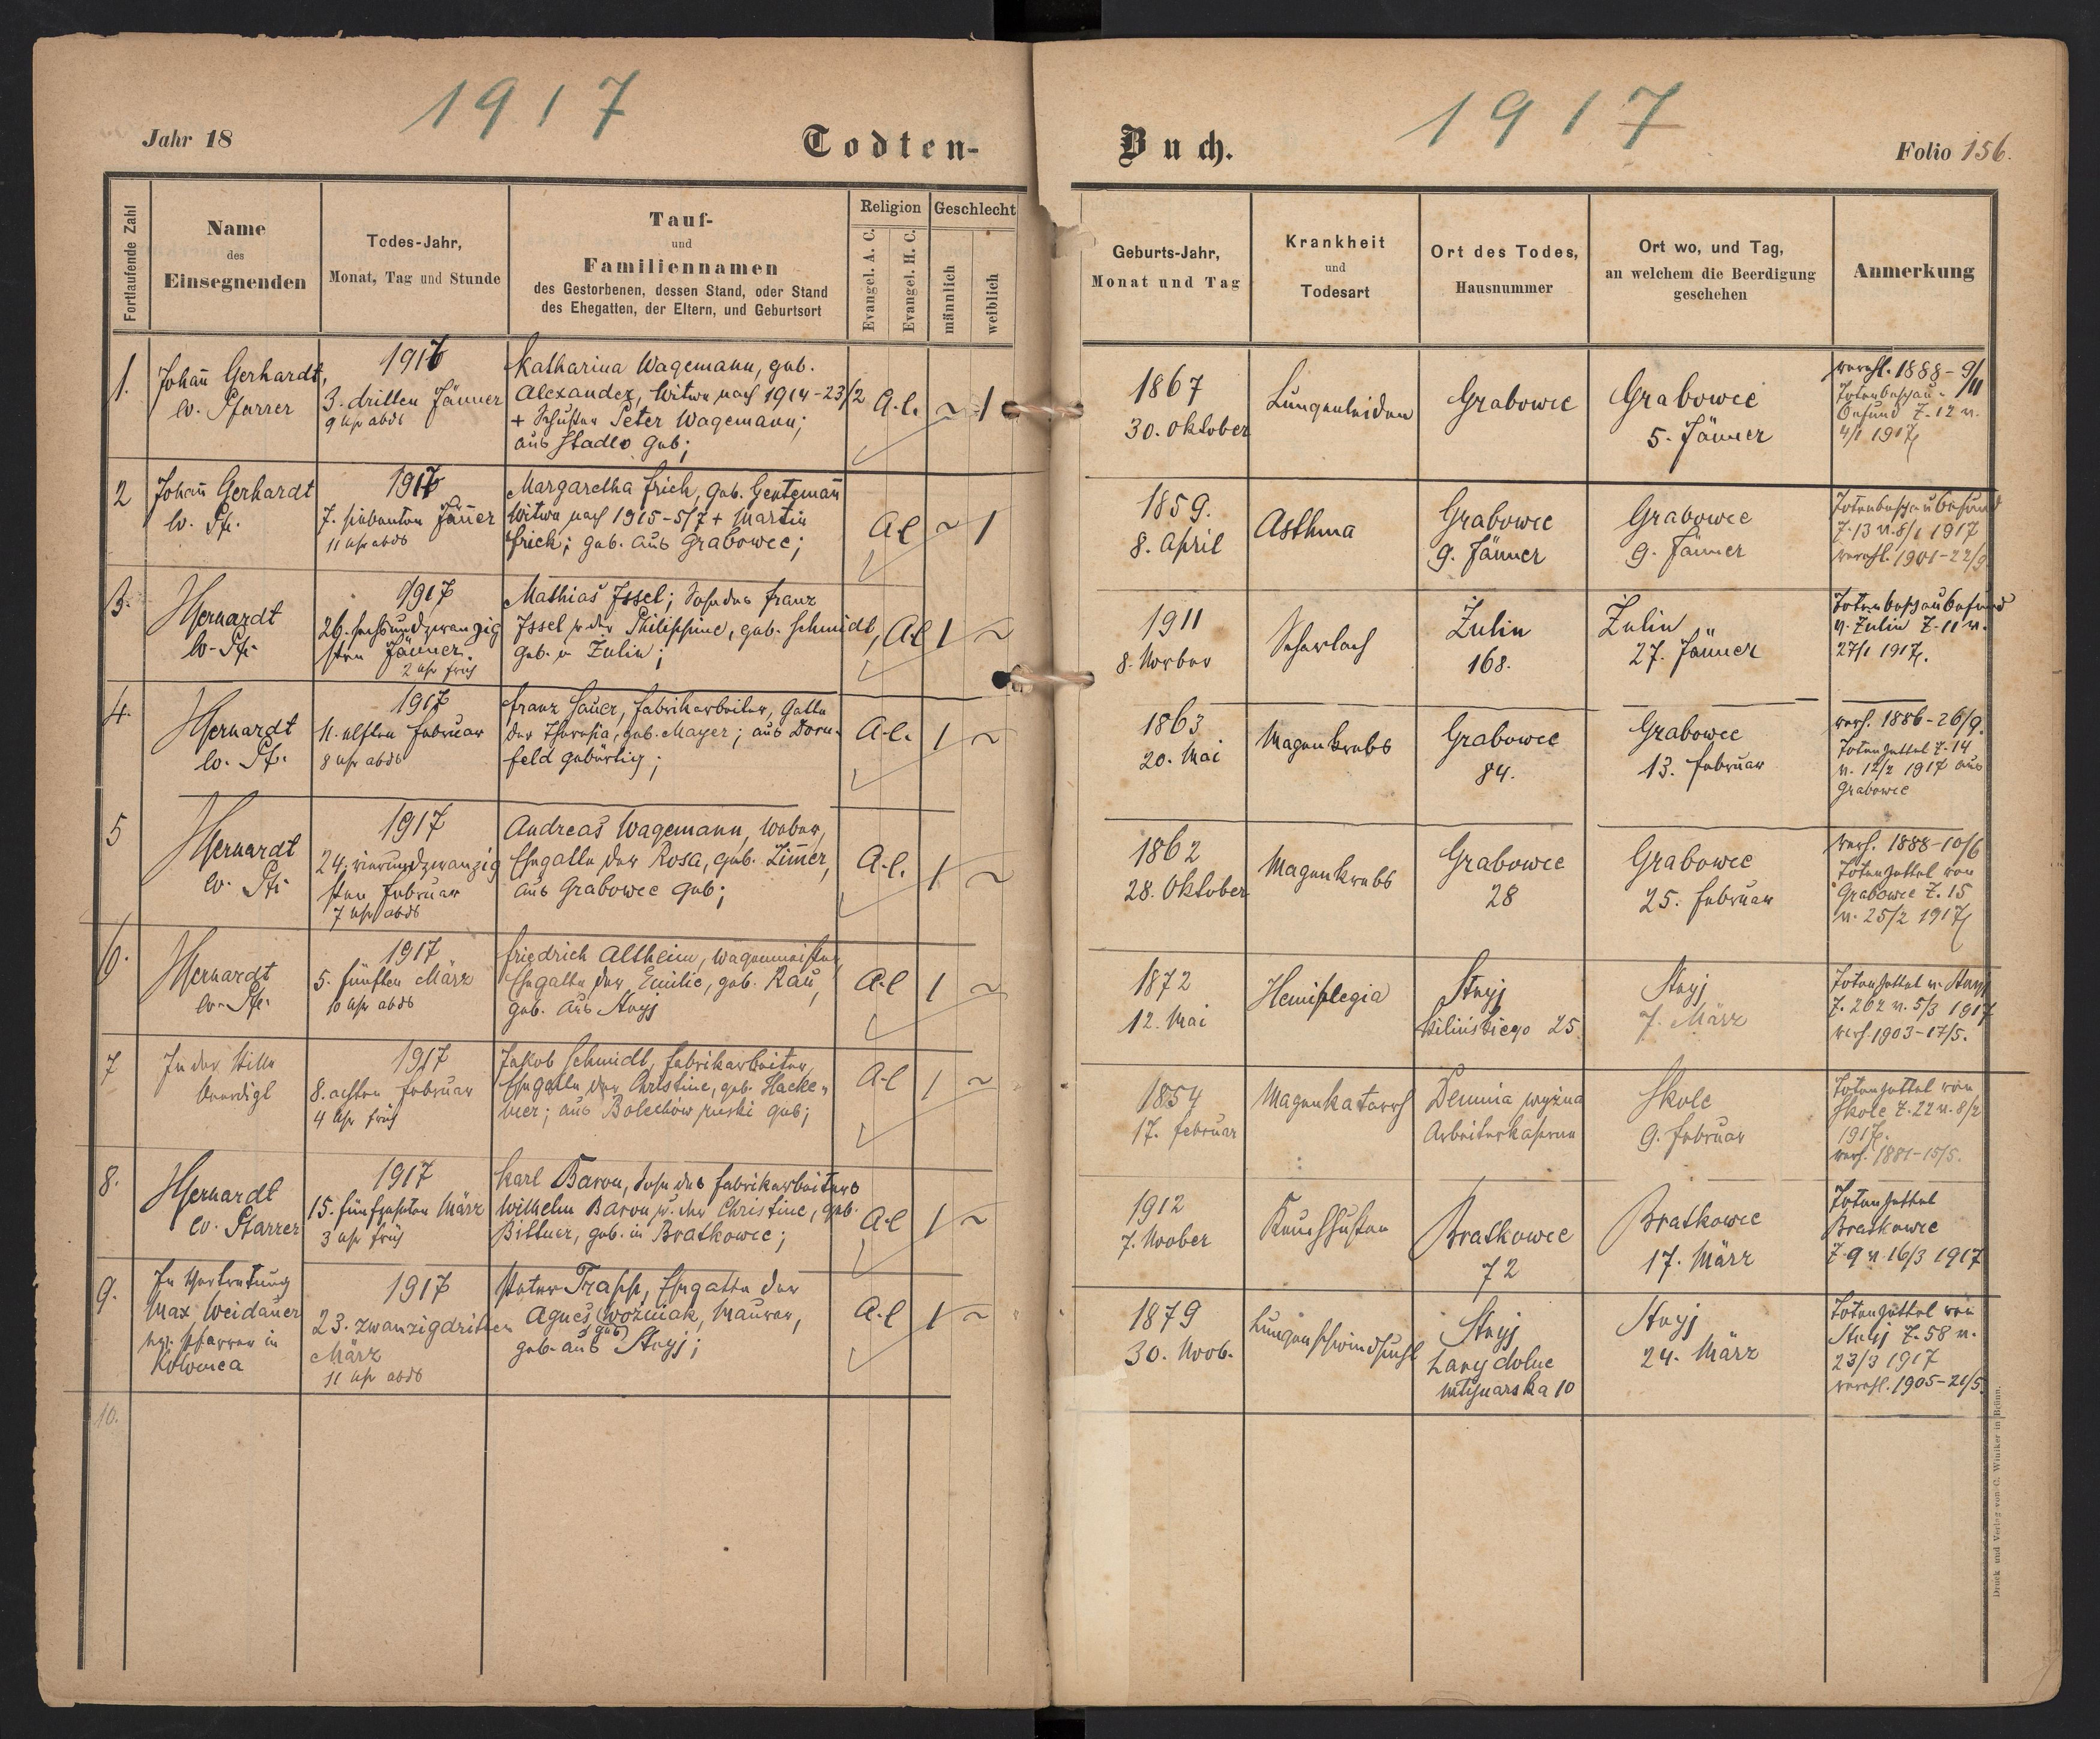 1917
1917
Jahr 18
Todten-
Buch.
Folio 156.
Fortlaufende Zahl
Name
des
Einsegnenden
Todes-Jahr,
Monat, Tag und Stunde
Tauf-
und
Familiennamen
des Gestorbenen, dessen Stand, oder Stand
des Ehegatten, der Eltern, und Geburtsort
Religion
Evangel. A. C.
Evangel. H. C.
Geschlecht
männlich
weiblich
Geburts-Jahr,
Monat und Tag
Krankheit
und
Todesart
Ort des Todes,
Hausnummer
Ort wo, und Tag,
an welchem die Beerdigung
geschehen
Anmerkung
1.
Johañ Gerhardt,
ev. Pfarrer
1917
3. dritten Jänner
9 Uhr abds
Katharina Wagemann, geb.
Alexander, Witwe nach 1914-23/2
+ Schuster Peter Wagemann;
aus Stadlo geb;
A.C.
~ 1
1867
30. Oktober
Lungenleiden
Grabowce
Grabowce
5. Jänner
verehl. 1888-9/11
Totenbeschau-
befund Z. 12 v.
4/1 1917
2
Johañ Gerhardt
ev. Pfr.
1917
7. siebenten Jäner
11 Uhr abds
Margaretha Frich, geb. Gentemañ
Witwe nach 1915-5/7 + Martin
Frich; geb. aus Grabowce;
A.C
~ 1
1859.
8. April
Asthma
Grabowce
9. Jänner
Grabowce
9. Jänner
Totenbeschaubefund
Z. 13 v. 8/1 1917
verehl. 1901-22/9
3.
Gerhardt
ev. Pfr.
1917
26. sechsundzwanzig
sten Jänner
2 Uhr früh
Mathias Issel; Sohn des Franz
Issel u der Philippine, geb. Schmidt,
geb. in Zulin;
A.C
1 ~
1911
8. Novber
Scharlach
Żulin
168.
Żulin
27. Jänner
Totenbeschaubefund
v. Zulin Z. 11 v.
27/1 1917.
4.
Gerhardt
ev. Pf.
1917
11. elften Februar
8 Uhr abds
Franz Sauer, Fabrikarbeiter, Gatte
der Theresia, geb. Mayer; aus Dorn-
feld gebürtig;
A.C.
1 ~
1863
20. Mai
Magenkrebs
Grabowce
84.
Grabowce
13. Februar
verh. 1886-26/9.
Totenzettel Z. 14
v. 12/2 1917 aus
Grabowce
5
Gerhardt
ev. Pfr
1917
24. vierundzwanzig
sten Februar
7 Uhr abds
Andreas Wagemann, Weber,
Ehegatte der Rosa, geb. Zim̄er,
aus Grabowce geb;
A.C.
1 ~
1862
28. Oktober
Magenkrebs
Grabowce
28
Grabowce
25. Februar
verh. 1888-10/6
Totenzettel von
Grabowce Z. 15
v. 25/2 1917
6.
Gerhardt
ev. Pfr.
1917
5. fünften März
10 Uhr abds
Friedrich Altheim, Wagenmeister,
Ehegatte der Emilie, geb. Rau,
geb. aus Stryj
A.C
1 ~
1872
12. Mai
Hemiplegia
Stryj
Kilińskiego 25
Stryj
7. März
Totenzettel v. Stryj
Z. 262 v. 5/3 1917
verh. 1903-17/5.
7
In der Stille
beerdigt
1917
8. achten Februar
4 Uhr früh
Jakob Schmidt, Fabrikarbeiter,
Ehegatte der Christine, geb. Hacke-
bier; aus Bolechów ruski geb;
A.C
1 ~
1854
17. Februar
Magenkatarrh
Demnia wyżna
Arbeiterkaserne
Skole
9. Februar
Totenzettel von
Skole Z. 22 v. 8/2
1917.
verh. 1881-15/5.
8.
Gerhardt
ev. Pfarrer
1917
15. fünfzehnten März
3 Uhr früh
Karl Baron, Sohn des Fabrikarbeiters
Wilhelm Baron u. der Christine, geb.
Bittner, geb. in Bratkowce;
A.C
1 ~
1912
7. Novber
Keuchhusten
Bratkowce
72
Bratkowce
17. März
Totenzettel
Bratkowce
Z. 9 v. 16/3 1917
9.
In Vertretung
Max Weidauer
ev. Pfarrer in
Kolomea
1917
23. zwanzigdritten
März
11 Uhr abds
Peter Trapp, Ehegatte der
Agnes (geb) Wozniak, Maurer,
geb. aus Stryj;
A.C
1 ~
1879
30. Novb.
Lungenschwindsucht
Stryj
Łany dolne
Młynarska 10
Stryj
24. März
Totenzettel von
Stryj Z. 58 v.
23/3 1917
verehl. 1905-21/5.
10.
Druck und Verlag von C. Winiker in Brünn.